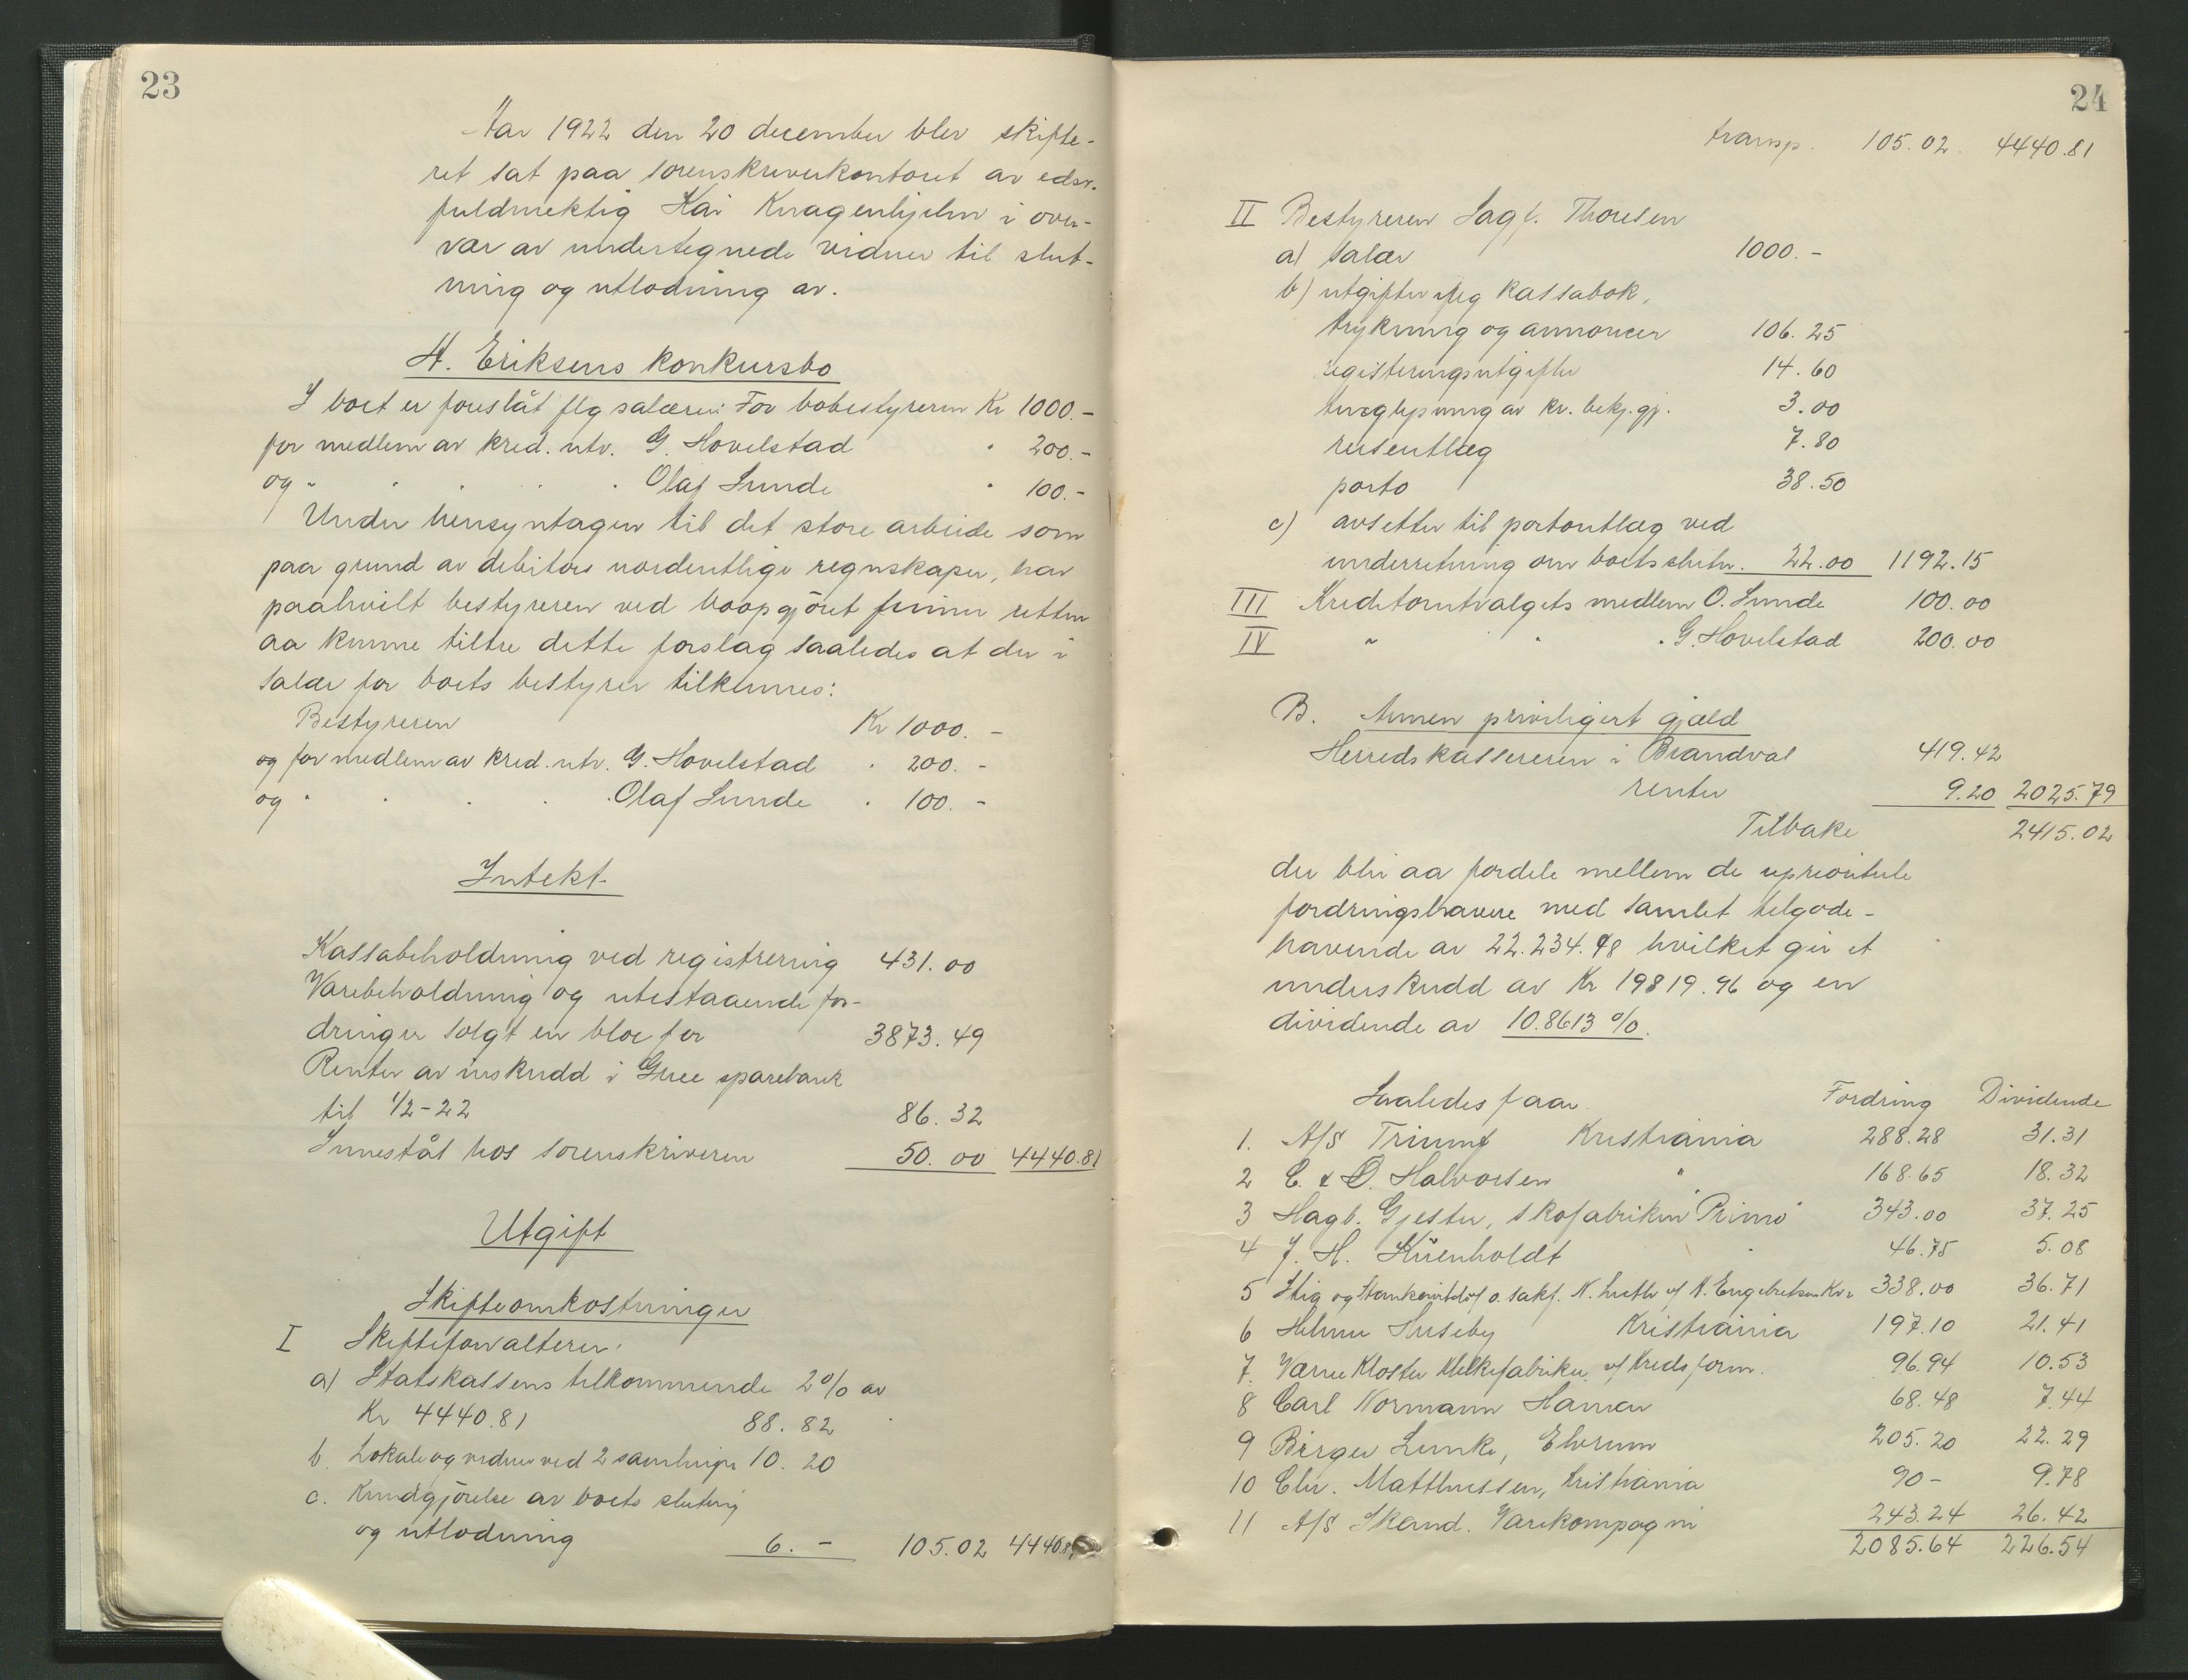 23
Aar 1922 den 20 december blev skifte-
ret sat paa sorenskriverkontoret av edsv.
fuldmektig Kai Knagenhjelm i over-
vær av undertegnede vidner til slut-
ning og utlodning av.
H. Eriksens konkursbo
I boet er foreslåt flg salærer: For bobestyreren Kr 1000.-
for medlem av kred. utv. G. Hovelstad " 200.-
og " " " " " Olaf Lunde " 100.-
Under hensyntagen til det store arbeide som
paa grund av debitors uordentlige regnskaper, har
paahvilt bestyreren ved boopgjöret finner retten
aa kunne tiltre dette forslag saaledes at der i
salær for boets bestyrer tilkjennes:
Bestyreren Kr 1000. -
og for medlem av kred. utv. G. Hovelstad " 200. -
og " " " " " Olaf Lunde " 100. -
Intekt
Kassabeholdning ved registrering 431.00
Varebeholdning og utestaaende for-
dringer solgt en bloc for 3873.49
Renter av inskudd i Grue sparebank
til 1/2-22 86.32
Innestål hos sorenskriveren 50.00 4440.81
Utgift
Skifteomkostninger
I Skifteforvalteren:
a) Statskassens tilkommende 2% av
Kr 4440.81 88.82
b. Lokale og vidner ved 2 samlinger 10.20
c. Kundgjörelse av boets slutning
og utlodning 6. - 105.02 4440.8
24
transp. 105.02 4440.81
II Bestyreren Sagf. Thoresen
a) salær 1000. -
b) utgifter iflg kassabok,
trykning og annoncer 106.25
registeringsutgifter 14.60
tinglysning av kv. bekj.gj. 3.00
reiseutlæg 7.80
porto 38.50
c) avsetter til portoutlæg ved
underretning om boets slutn. 22.00 1192.15
III Kreditorutvalgets medlem O. Lunde 100.00
IV " " " G. Hovelstad 200.00
B. Annen priviligert gjæld
Herredskassereren i Brandval 419.42
renter 9.20 2025.79
Tilbake 2415.02
der blir aa fordele mellem de uprioritete
fordringshavere med samlet tilgode-
havende av 22.234.98 hvilket gir et
underskudd av Kr 19819.96 og en
dividende av 10.8613 %.
Saaledes faar Fordring Dividende
1. A/S Triumf Kristiania 288.28 31.31
2 C. & O. Halvorsen " 168.65 18.32
3 Hagb. Gjester, skofabriken "Primo" 343.00 37.25
4 J. H. Küenholdt " 46.75 5.08
5 Stig og o. sakf. N. v/ A. Engebretsen Kr.a 338.00 36.71
6 Helmer Huseby Kristiania 197.10 21.41
7. Værne Kloster Melkefabriker v/ Kredsform. 96.94 10.53
8 Carl Normann Hamar 68.48 7.44
9 Birger Lunke, Elverum 205.20 22.29
10 Chr. Matthiessen, Kristiania 90- 9.78
11 A/S Skand. Varekompagni 243.24 26.42
2085.64 226.54